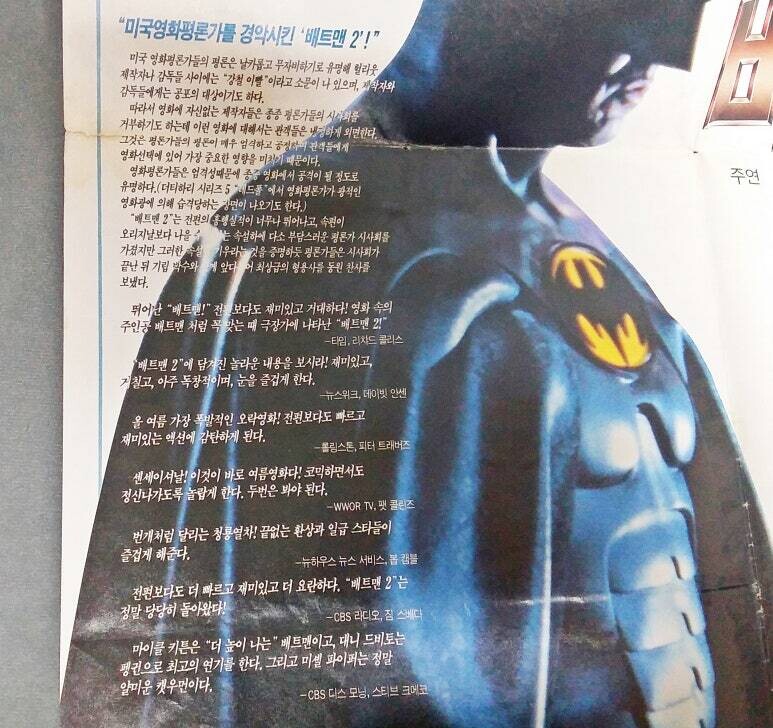 "미국영화평론가를 경악시킨 '배트맨 2'!"
미국 영화평론가들의 평론은 날카롭고 무자비하기로 유명해 헐리웃
제작자나 감독들 사이에는 "강철 이빨"이라고 소문이 나 있으며, 제작자와
감독들에게는 공포의 대상이기도 하다.
따라서 영화에 자신없는 제작자들은 종종 평론가들의 시사회를
거부하기도 하는데 이런 영화에 대해서는 관객들은 냉정하게 외면한다.
그것은 평론가들의 평론이 매우 엄격하고 공정하여 관객들에게
영화선택에 있어 가장 중요한 영향을 미치기 때문이다.
영화평론가들은 엄격성때문에 종종 영화에서 공격이 될 정도로
유명하다.(더티하리 시리즈 5 "데드풀"에서 영화평론가가 광적인
영화광에 의해 습격당하는 장면이 나오기도 한다.)
"배트맨 2"는 전편의 흥행실적이 너무나 뛰어나고, 속편이
오리지날보다 나을 는 속설하에 다소 부담스러운 평론가 시사회를
가졌지만 그러한 속설 기우라는 것을 증명하듯 평론가들은 시사회가
끝난 뒤 기립 박수와 앞다 어 최상급의 형용사를 동원 찬사를
보냈다.
뛰어난 "배트맨!" 전편보다도 재미있고 거대하다! 영화 속의
주인공 배트맨 처럼 꼭 맞는 때 극장가에 나타난 "배트맨 2!"
–타임, 리차드 콜리스
"배트맨 2"에 담겨진 놀라운 내용을 보시라! 재미있고,
거칠고, 아주 독창적이며, 눈을 즐겁게 한다.
–뉴스위크, 데이빗 안센
올 여름 가장 폭발적인 오락영화! 전편보다도 빠르고
재미있는 액션에 감탄하게 된다.
–롤링스톤, 피터 트래버즈
센세이셔날! 이것이 바로 여름영화다! 코믹하면서도
정신나가도록 놀랍게 한다. 두번은 봐야 된다.
–WWOR TV, 팻 콜린즈
번개처럼 달리는 청룡열차! 끝없는 환상과 일급 스타들이
즐겁게 해준다.
–뉴하우스 뉴스 서비스, 봅 캠블
전편보다도 더 빠르고 재미있고 더 요란하다. "배트맨 2"는
정말 당당히 돌아왔다!
–CBS 라디오, 짐 스베다
마이클 키튼은 "더 높이 나는" 배트맨이고, 대니 드비토는
펭귄으로 최고의 연기를 한다. 그리고 미셸 파이퍼는 정말
얄미운 캣우먼이다.
–CBS 디스 모닝, 스티브 크메코
주연